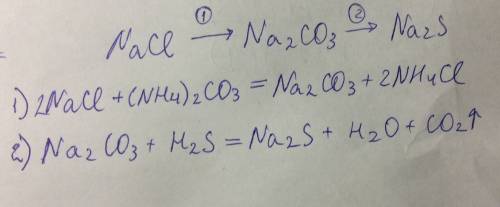 NaCl ①→ Na₂CO₃ ②→ Na₂S
1) 2NaCl + (NH₄)₂CO₃ = Na₂CO₃ + 2NH₄Cl
2) Na₂CO₃ + H₂S = Na₂S + H₂O + CO₂↑